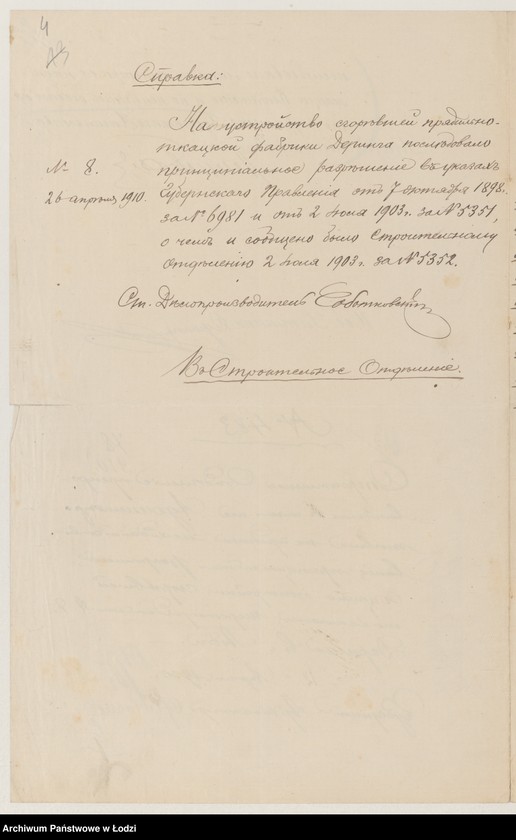 4
Справка:
На устройство сгорѣвшей прядильно-
ткацкой фабрики Деринга послѣдовало
№ 8.
принципіальное разрѣшеніе въ указахъ
26 апрѣля 1910.
Губернскаго Правленія отъ 7 октября 1898 г.
за № 6981 и отъ 2 іюля 1903 г. за № 5351,
о чемъ и сообщено было Строительному
отдѣленію 2 іюля 1903 г. за № 5352.
Ст. Дѣлопроизводитель
Въ Строительное Отдѣленіе.
Archiwum Państwowe w Łodzi